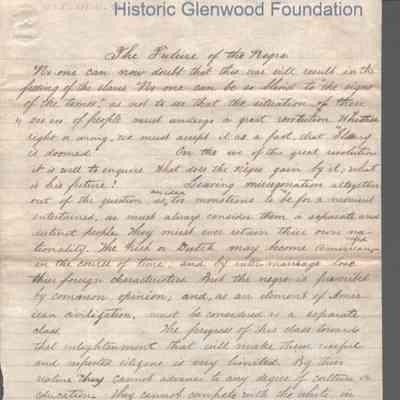 Historic Glenwood Foundation
The Future of the Negro
No one can now doubt that this war will result in the
freeing of the slaves. No one can be so blind to "the signs
of the times" as not to see that the situation of these
of people must undergo a great revolution Whether
right or wrong, we must accept it as a fact, that Slavery
is doomed! On the eve of this great revolution
it is well to enquire what does the Negro gain by it; what
is his future? Leaving miscegenation altogether
out of the question as an idea too monstrous to be for a moment
entertained, we must always consider them a separate and
distinct people. They must ever retain their own na-
tionality. The Irish or Dutch may become Americans
in the course of time, and by inter marriage lose
their foreign characteristics. But the negro is proscribed
by common opinion, and, as an element of Amer-
ican civilization, must be considered as a separate
class. The progress of this class towards
that enlightenment that will make them useful
and respected citizens is very limited. By their
nature they cannot advance to any degree of culture or
education. They cannot compete with the white in